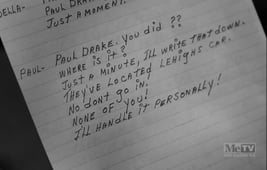 DELLA- PAUL DRAKE.
JUST A MOMENT.
PAUL- PAUL DRAKE. YOU DID ??
WHERE IS IT ?
JUST A MINUTE, I'LL WRITE THAT DOWN.
THEY'VE LOCATED LEHIGHS CAR.
NO DONT GO IN.
NONE OF YOU!
I'LL HANDLE IT PERSONALLY!
MeTV